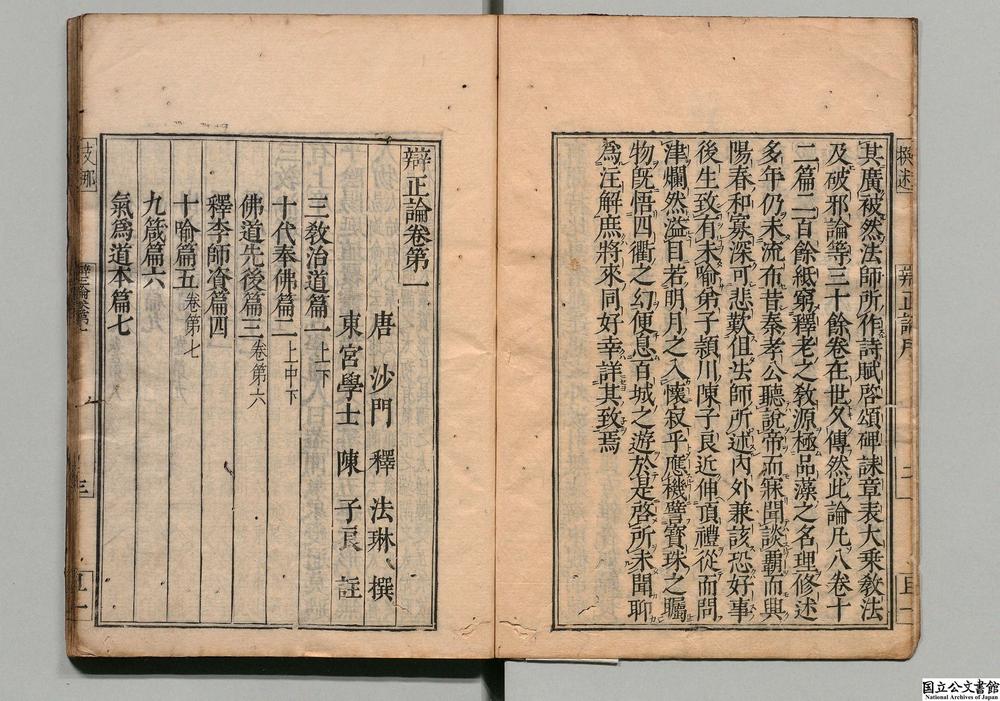 其廣被然法師所作詩賦啓頌碑誄章表大乘教法
及破邪論等三十餘卷在世久傳然此論凡八卷十
二篇二百餘紙窮釋老之教源極品藻之名理修述
多年仍未流布昔秦孝公聽說帝而寐聞談霸而興
陽春和寡深可悲歎但法師所述內外兼該恐好事
後生致有未喻弟子頴川陳子良近伸頂禮從而問
津爛然溢目若明月之入懷寂乎應機譬寳珠之矚
物旣悟四衢之幻便息百城之遊於是啓所未聞聊
爲注解庶將來同好幸詳其致焉
辯正論卷第一
唐 沙門 釋 法琳 撰
東宮學士 陳 子良 註
三教治道篇一上下
十代奉佛篇二上中下
佛道先後篇三卷第六
釋李師資篇四
十喻篇五卷第七
九箴篇六
氣爲道本篇七
辯正論序
二
三
国立公文書館
National Archives of Japan